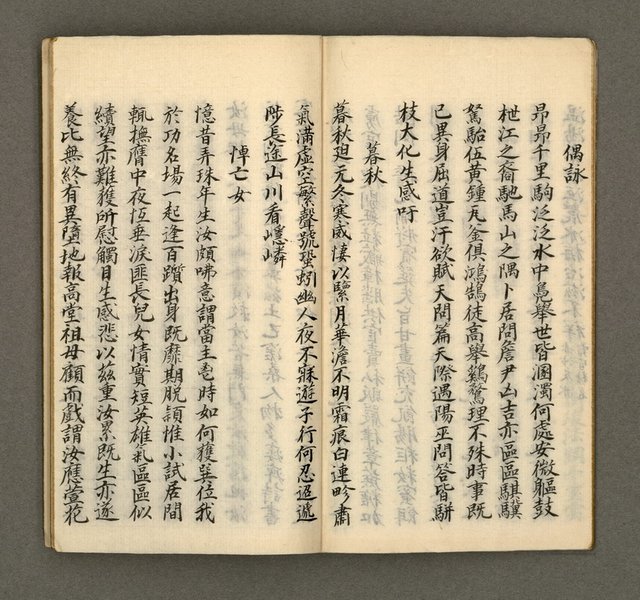 偶詠
昂昂千里駒泛泛水中鳧舉世皆溷濁何處安微軀鼓
枻江之裔馳馬山之隅卜居問詹尹凶吉亦區區騏驥
駑駘伍黃鍾瓦釜俱鴻鵠徒高舉鷄鶩理不殊時事既
已異身屈道豈汙欲賦天問篇天際遇陽巫問答皆駢
枝大化生感吁
暮秋
暮秋迫元冬寒威悽以鑒月華澹不明霜痕白連畛肅
氣滿虛空繁聲號蛩蚓幽人夜不寐遊子行何忍迢遞
陟長途山川看嶾嶙
悼亡女
憶昔弄珠年生汝頗咈意謂當主鬯時如何獲巽位我
於功名場一起逢百躓出身既靡期脫頴惟小試居閒
輒撫膺中夜恆垂淚匪長兒女情實短英雄氣區區似
續望亦難獲所慰觸目生感悲以茲重汝累既生亦遂
養比無終有異墮地報高堂祖母顧而戲謂汝應萱花